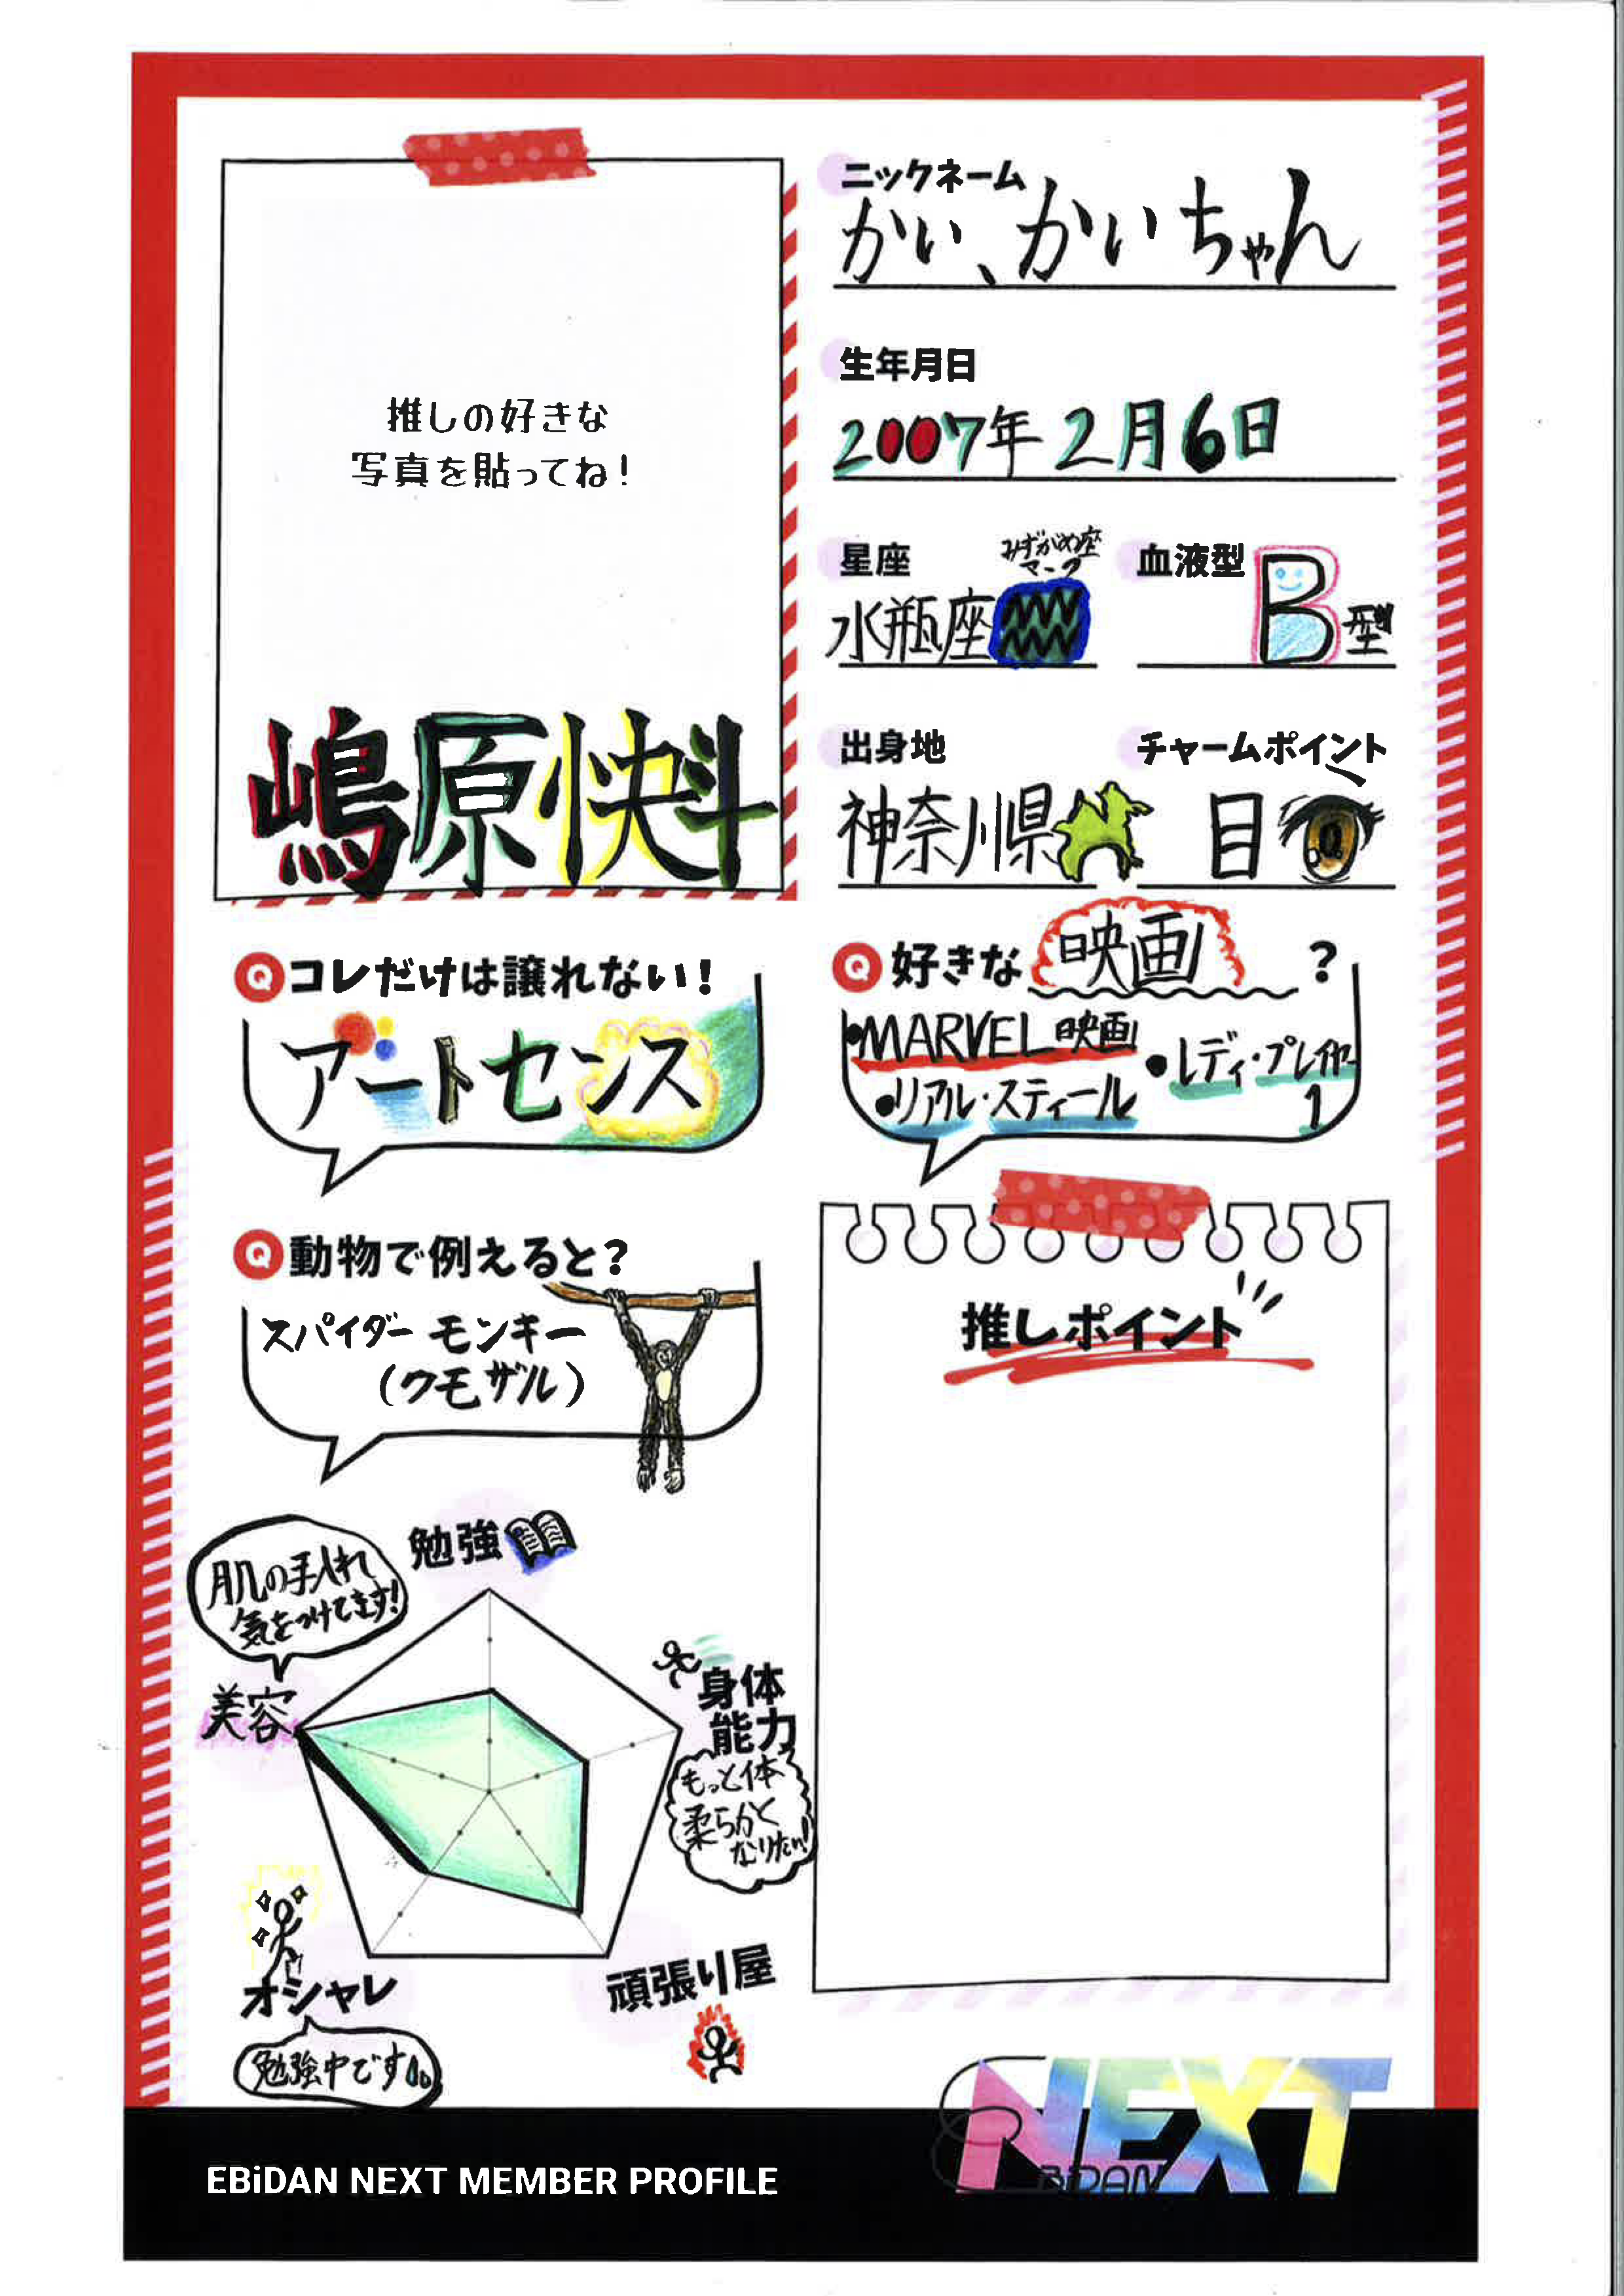 推しの好きな
写真を貼ってね!
嶋原快斗
ニックネーム
かい、かいちゃん
生年月日
2007年2月6日
星座
みずがめ座
マーク
水瓶座
血液型
B型
出身地
神奈川県
チャームポイント
目
Q コレだけは譲れない!
アートセンス
Q 好きな 映画 ?
•MARVEL映画
•リアル・スティール
•レディ・プレイヤー
1
Q 動物で例えると?
スパイダーモンキー
(クモザル)
勉強
肌の手入れ
気をつけてます!
美容
身体
能力
もっと体
柔らかく
なりたい!
オシャレ
勉強中です。
頑張り屋
推しポイント
EBiDAN NEXT MEMBER PROFILE
NEXT
EBiDAN